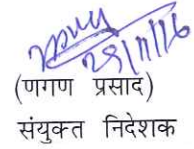 29/11/16
(णगण प्रसाद)
संयुक्त निदेशक